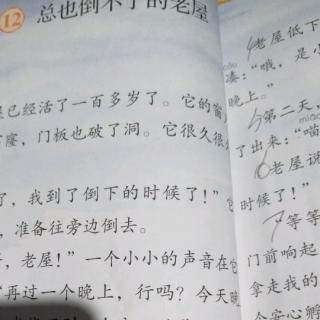 12 总也倒不了的老屋
已经活了一百多岁了。它的窗
窿,门板也破了洞。它很久很
了,我到了倒下的时候了!”它
,准备往旁边倒去。
,老屋!”一个小小的声音在它
“再过一个晚上,行吗?今天晚
老屋低下
còu
凑:“哦,是小
晚上。”
第二天,
miāo
了出来:“喵
老屋说
时候了!”
等等
门前响起
拿走我的
个安心孵